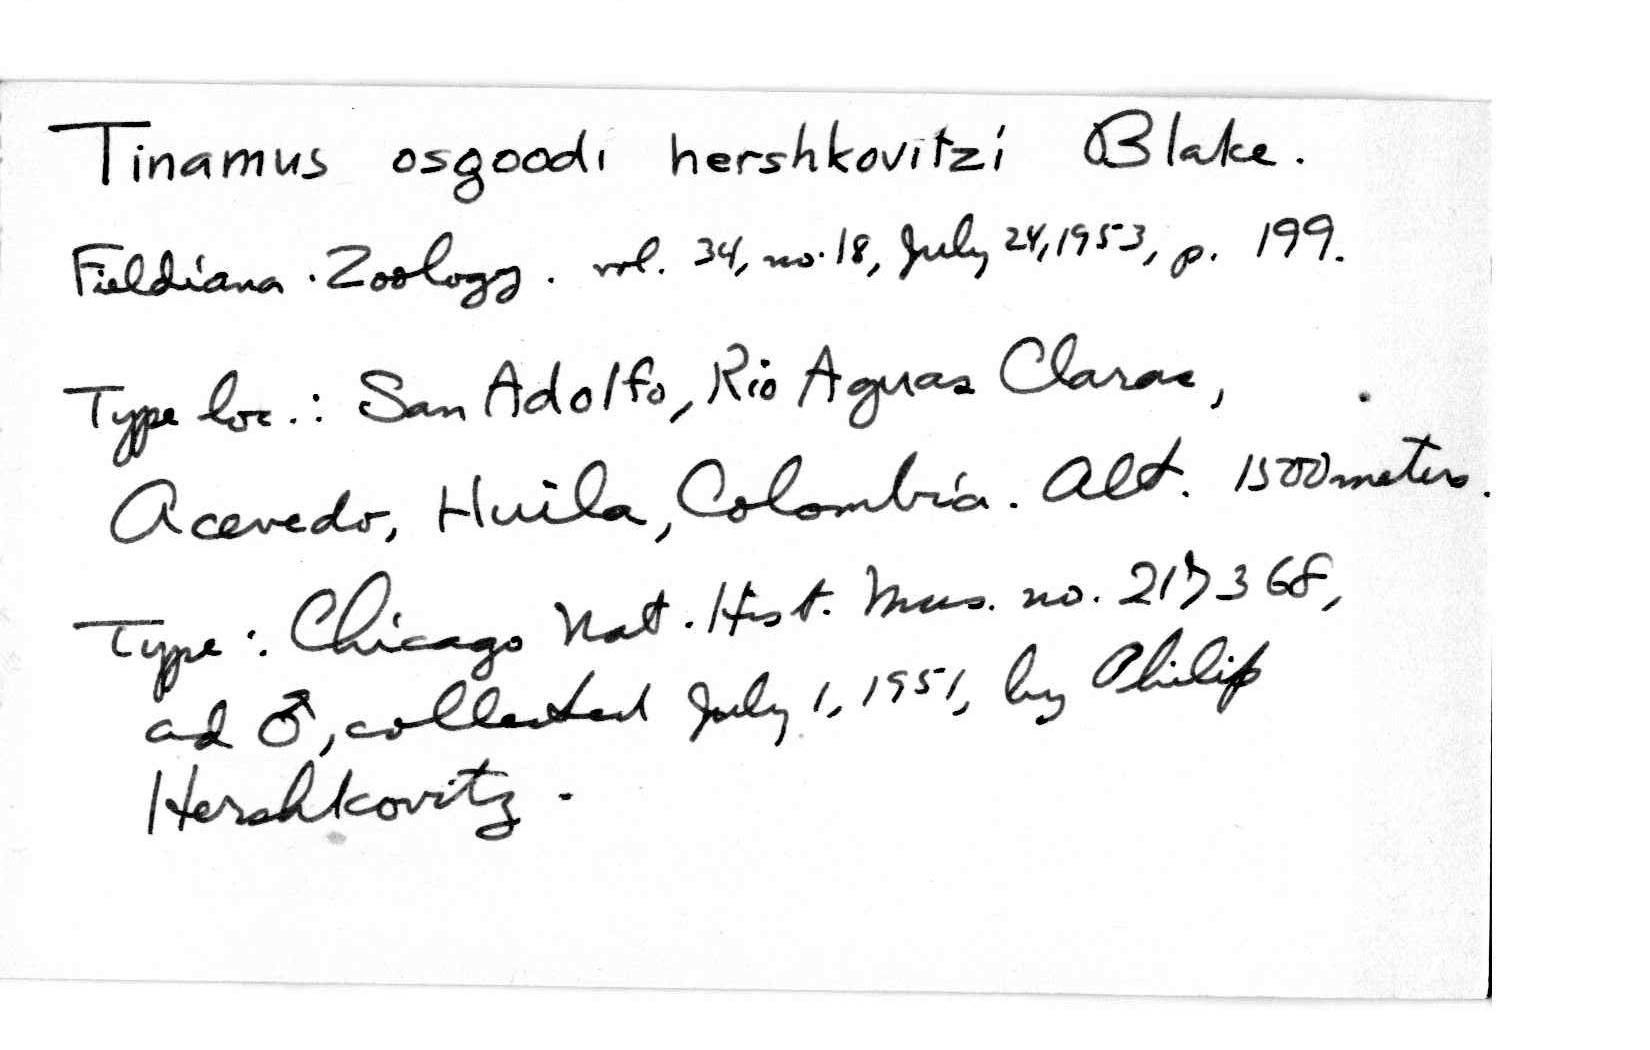 Tinamus osgoodi hershkovitzi Blake.
Fieldiana. Zoology. vol. 34, no. 18, July 24, 1953, p. 199.
Type loc.: San Adolfo, Rio Aguas Claras,
Acevedo, Huila, Colombia. Alt. 1500 meters.
Type: Chicago Nat. Hist. Mus. no. 217368,
ad ♂, collected July 1, 1951, by Philip
Hershkovitz.